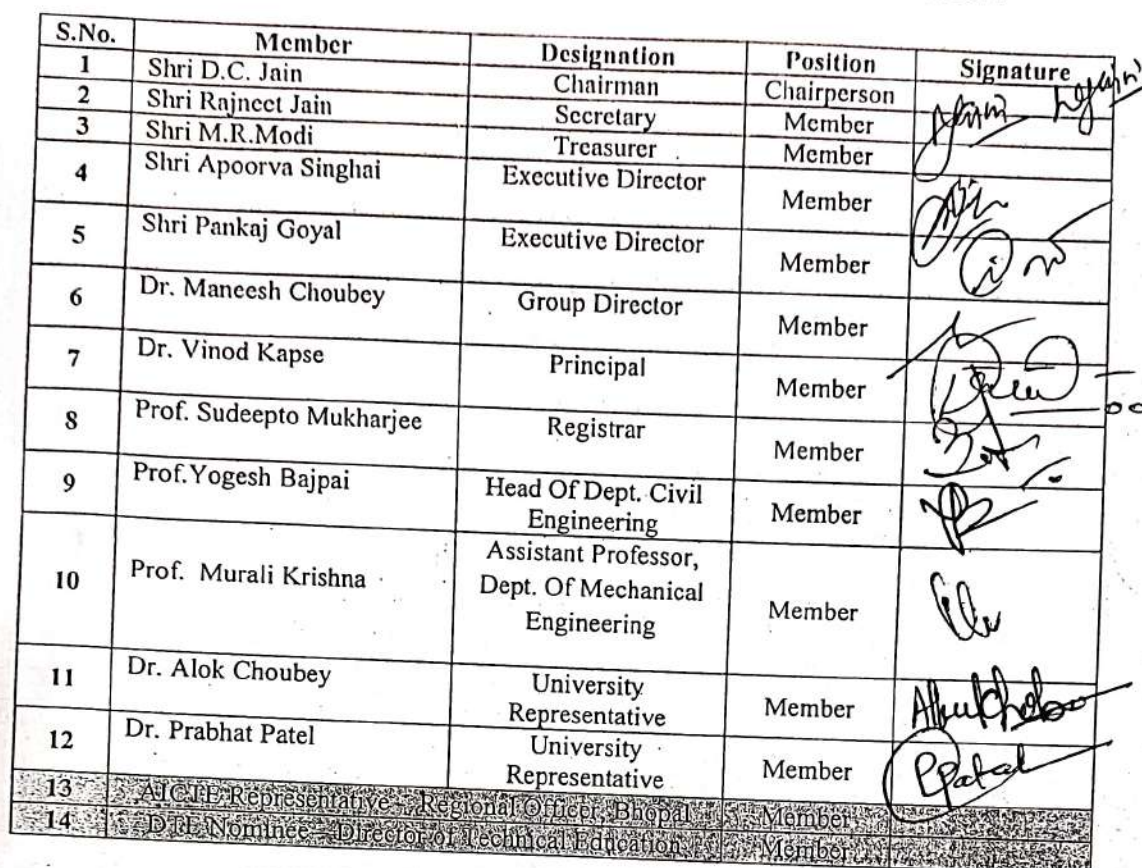 S.No. Member Designation Position Signature
1 Shri D.C. Jain Chairman Chairperson
2 Shri Rajneet Jain Secretary Member
3 Shri M.R.Modi Treasurer Member
4 Shri Apoorva Singhai Executive Director Member
5 Shri Pankaj Goyal Executive Director Member
6 Dr. Maneesh Choubey Group Director Member
7 Dr. Vinod Kapse Principal Member
8 Prof. Sudeepto Mukharjee Registrar Member
9 Prof.Yogesh Bajpai Head Of Dept. Civil
Engineering Member
10 Prof. Murali Krishna Assistant Professor,
Dept. Of Mechanical
Engineering Member
11 Dr. Alok Choubey University
Representative Member
12 Dr. Prabhat Patel University
Representative Member PPatel
13 AICTE Representative – Regional Officer, Bhopal Member
14 DTE Nominee – Director of Technical Education Member